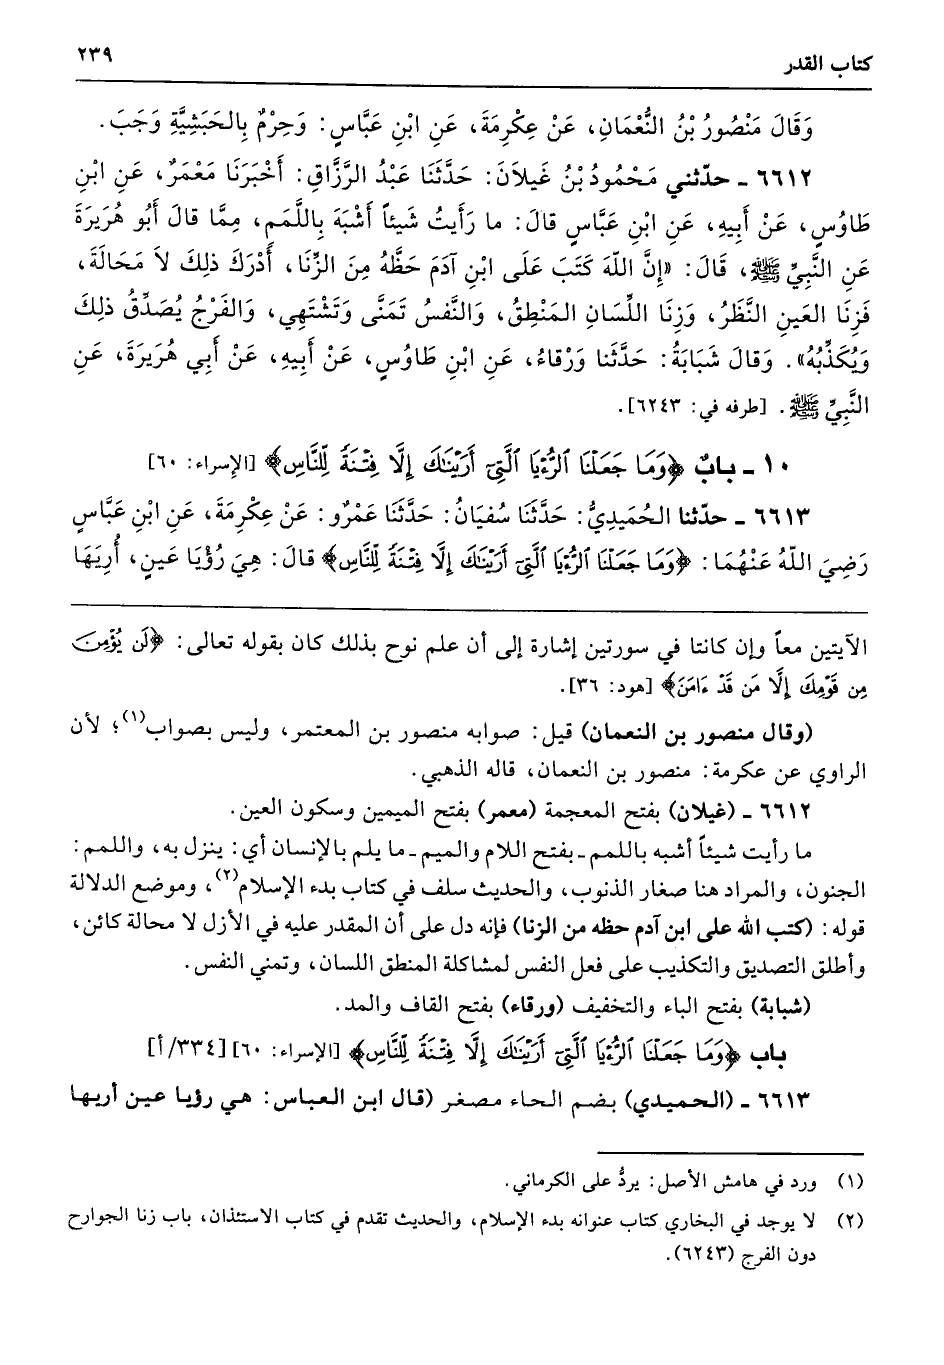 كتاب القدر
٢٣٩
وَقَالَ مَنْصُورُ بْنُ النُّعْمَانِ، عَنْ عِكْرِمَةَ، عَنِ ابْنِ عَبَّاسٍ: وَحِرْمٌ بِالحَبَشِيَّةِ وَجَبَ.
٦٦١٢ ـ حدّثني مَحْمُودُ بْنُ غَيلاَنَ: حَدَّثَنَا عَبْدُ الرَّزَّاقِ: أَخْبَرَنَا مَعْمَرٌ، عَنِ ابْنِ
طَاوُسٍ، عَنْ أَبِيهِ، عَنِ ابْنِ عَبَّاسٍ قالَ: ما رَأَيتُ شَيئاً أَشْبَهَ بِاللَّمَمِ، مِمَّا قالَ أَبُو هُرَيرَةَ
عَنِ النَّبِيِّ ﷺ، قَالَ: «إِنَّ اللّهَ كَتَبَ عَلَى ابْنِ آدَمَ حَظَّهُ مِنَ الزِّنَا، أَدْرَكَ ذلِكَ لاَ مَحَالَةَ،
فَزِنَا العَينِ النَّظَرُ، وَزِنَا اللِّسَانِ المَنْطِقُ، وَالنَّفسُ تَمَنَّى وَتَشْتَهِي، وَالفَرْجُ يُصَدِّقُ ذلِكَ
وَيُكَذِّبُهُ». وَقالَ شَبَابَةُ: حَدَّثَنا وَرْقاءُ، عَنِ ابْنِ طَاوُسٍ، عَنْ أَبِيهِ، عَنْ أَبِي هُرَيرَةَ، عَنِ
النَّبِيِّ ﷺ. [طرفه في: ٦٢٤٣].
١٠ ـ بابٌ ﴿وَمَا جَعَلْنَا ٱلرُّءْيَا ٱلَّتِىٓ أَرَيْنَٰكَ إِلَّا فِتْنَةً لِّلنَّاسِ﴾ [الإسراء: ٦٠]
٦٦١٣ ـ حدّثنا الحُمَيدِيُّ: حَدَّثَنَا سُفيَانُ: حَدَّثَنَا عَمْرٌو: عَنْ عِكْرِمَةَ، عَنِ ابْنِ عَبَّاسٍ
رَضِيَ اللّهُ عَنْهُمَا: ﴿وَمَا جَعَلْنَا ٱلرُّءْيَا ٱلَّتِىٓ أَرَيْنَٰكَ إِلَّا فِتْنَةً لِّلنَّاسِ﴾ قالَ: هِيَ رُؤْيَا عَينٍ، أُرِيَهَا
الآيتين معاً وإن كانتا في سورتين إشارة إلى أن علم نوح بذلك كان بقوله تعالى: ﴿لَن يُؤْمِنَ
مِن قَوْمِكَ إِلَّا مَن قَدْ ءَامَنَ﴾ [هود: ٣٦].
(وقال منصور بن النعمان) قيل: صوابه منصور بن المعتمر، وليس بصواب(١)؛ لأن
الراوي عن عكرمة: منصور بن النعمان، قاله الذهبي.
٦٦١٢ ـ (غيلان) بفتح المعجمة (معمر) بفتح الميمين وسكون العين.
ما رأيت شيئاً أشبه باللمم ـ بفتح اللام والميم ـ ما يلم بالإنسان أي: ينزل به، واللمم:
الجنون، والمراد هنا صغار الذنوب، والحديث سلف في كتاب بدء الإسلام(٢)، وموضع الدلالة
قوله: (كتب الله على ابن آدم حظه من الزنا) فإنه دل على أن المقدر عليه في الأزل لا محالة كائن،
وأطلق التصديق والتكذيب على فعل النفس لمشاكلة المنطق اللسان، وتمني النفس.
(شبابة) بفتح الباء والتخفيف (ورقاء) بفتح القاف والمد.
باب ﴿وَمَا جَعَلْنَا ٱلرُّءْيَا ٱلَّتِىٓ أَرَيْنَٰكَ إِلَّا فِتْنَةً لِّلنَّاسِ﴾ [الإسراء: ٦٠] [٣٣٤/أ]
٦٦١٣ ـ (الحميدي) بضم الحاء مصغر (قال ابن العباس: هي رؤيا عين أريها
(١) ورد في هامش الأصل: يردُّ على الكرماني.
(٢) لا يوجد في البخاري كتاب عنوانه بدء الإسلام، والحديث تقدم في كتاب الاستئذان، باب زنا الجوارح
دون الفرج (٦٢٤٣).